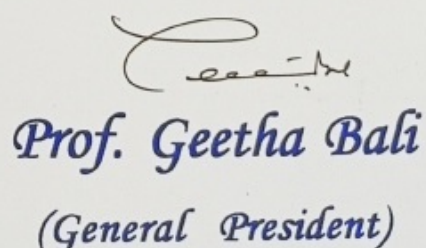 Prof. Geetha Bali
(General President)